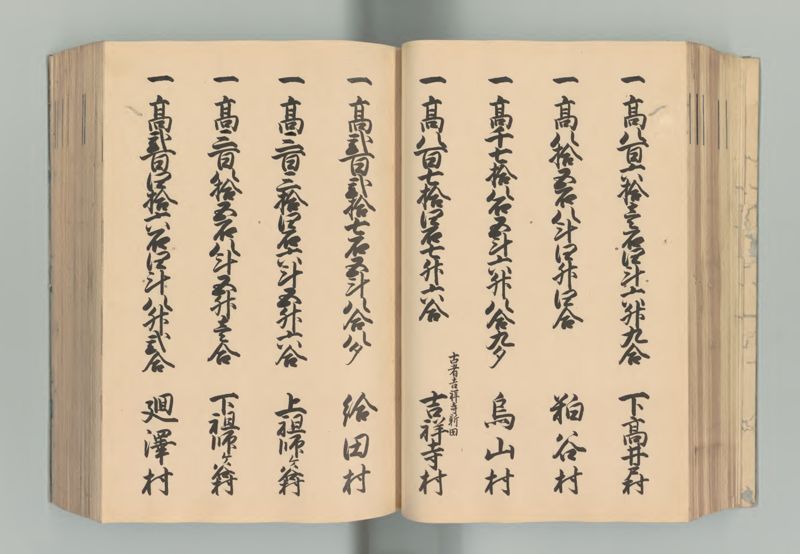 一 高八百六拾壱石四斗六升九合 下高井戸村
一 高八拾五石八斗四升四合 粕谷村
一 高千七拾八石五斗六升八合九夕 烏山村
古者吉祥寺新田
一 高八百七拾四石七升六合 吉祥寺村
一 高弐百弐拾七石五斗八合八夕 給田村
一 高三百三拾四石六斗五升六合 上祖師ヶ谷村
一 高三百八拾五石八斗五升壱合 下祖師ヶ谷村
一 高弐百四拾六石四斗八升弐合 廻澤村